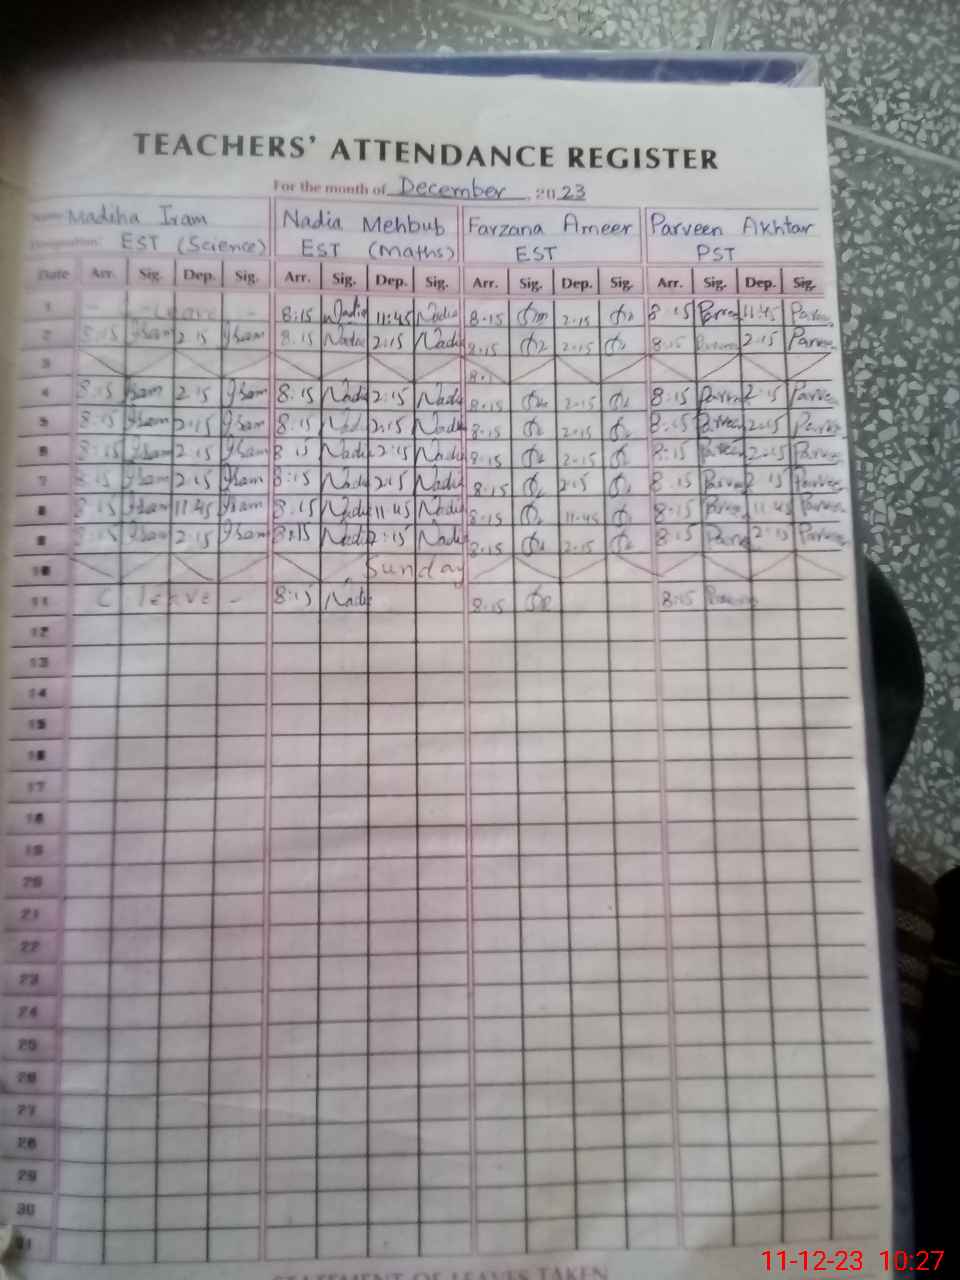 TEACHERS' ATTENDANCE REGISTER
For the month of December, 2023
Name: Madiha Iram Nadia Mehbub Farzana Ameer Parveen Akhtar
Designation: EST (Science) EST (Maths) EST PST
Date Arr. Sig. Dep. Sig. Arr. Sig. Dep. Sig. Arr. Sig. Dep. Sig. Arr. Sig. Dep. Sig.
1 - Leave - 8:15 Nadia 11:45 Nadia 8:15 2:15 8:15 Parveen 11:45 Parveen
2 8:15 2:15 8:15 Nadia 2:15 Nadia 8:15 2:15 8:15 Parveen 2:15 Parveen
3
4 8:15 2:15 8:15 Nadia 2:15 Nadia 8:15 2:15 8:15 Parveen 2:15 Parveen
5 8:15 2:15 8:15 Nadia 2:15 Nadia 8:15 2:15 8:15 Parveen 2:15 Parveen
6 8:15 2:15 8:15 Nadia 2:15 Nadia 8:15 2:15 8:15 Parveen 2:15 Parveen
7 8:15 2:15 8:15 Nadia 2:15 Nadia 8:15 2:15 8:15 Parveen 2:15 Parveen
8 8:15 11:45 8:15 Nadia 11:45 Nadia 8:15 11:45 8:15 Parveen 11:45 Parveen
9 8:15 2:15 8:15 Nadia 2:15 Nadia 8:15 2:15 8:15 Parveen 2:15 Parveen
10 Sunday
11 C. leave - 8:15 Nadia 8:15 8:15 Parveen
12
13
14
15
16
17
18
19
20
21
22
23
24
25
26
27
28
29
30
31
STATEMENT OF LEAVES TAKEN
11-12-23 10:27